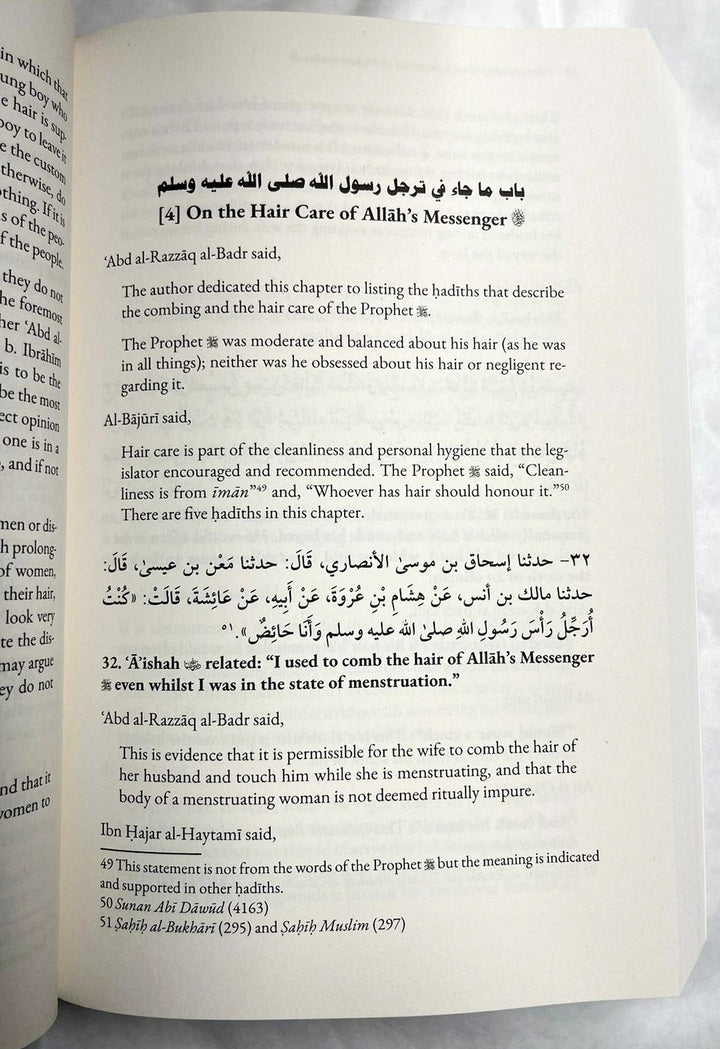 in which that
ung boy who
e hair is sup-
boy to leave it
e the custom
therwise, do
thing. If it is
s of the peo-
f the people.
they do not
he foremost
her ‘Abd al-
b. Ibrāhīm
is to be the
be the most
ect opinion
one is in a
, and if not
men or dis-
h prolong-
of women,
their hair,
look very
te the dis-
may argue
ey do not
nd that it
vomen to
باب ما جاء في ترجل رسول الله صلى الله عليه وسلم
[4] On the Hair Care of Allāh’s Messenger ﷺ
‘Abd al-Razzāq al-Badr said,
The author dedicated this chapter to listing the ḥadīths that describe
the combing and the hair care of the Prophet ﷺ.
The Prophet ﷺ was moderate and balanced about his hair (as he was
in all things); neither was he obsessed about his hair or negligent re-
garding it.
Al-Bājūrī said,
Hair care is part of the cleanliness and personal hygiene that the leg-
islator encouraged and recommended. The Prophet ﷺ said, “Clean-
liness is from īmān”⁴⁹ and, “Whoever has hair should honour it.”⁵⁰
There are five ḥadīths in this chapter.
٣٢- حدثنا إسحاق بن موسىٰ الأنصاري، قَالَ: حدثنا مَعْن بن عيسىٰ، قَالَ:
حدثنا مالك بن أنس، عَنْ هِشَامِ بْنِ عُرْوَةَ، عَنْ أَبِيهِ، عَنْ عَائِشَةَ، قَالَتْ: «كُنْتُ
أُرَجِّلُ رَأْسَ رَسُولِ اللهِ صلىٰ الله عليه وسلم وَأَنَا حَائِضٌ».٥١
32. ‘Ā’ishah related: “I used to comb the hair of Allāh’s Messenger
ﷺ even whilst I was in the state of menstruation.”
‘Abd al-Razzāq al-Badr said,
This is evidence that it is permissible for the wife to comb the hair of
her husband and touch him while she is menstruating, and that the
body of a menstruating woman is not deemed ritually impure.
Ibn Ḥajar al-Haytamī said,
49 This statement is not from the words of the Prophet ﷺ but the meaning is indicated
and supported in other ḥadīths.
50 Sunan Abī Dāwūd (4163)
51 Ṣaḥīḥ al-Bukhārī (295) and Ṣaḥīḥ Muslim (297)